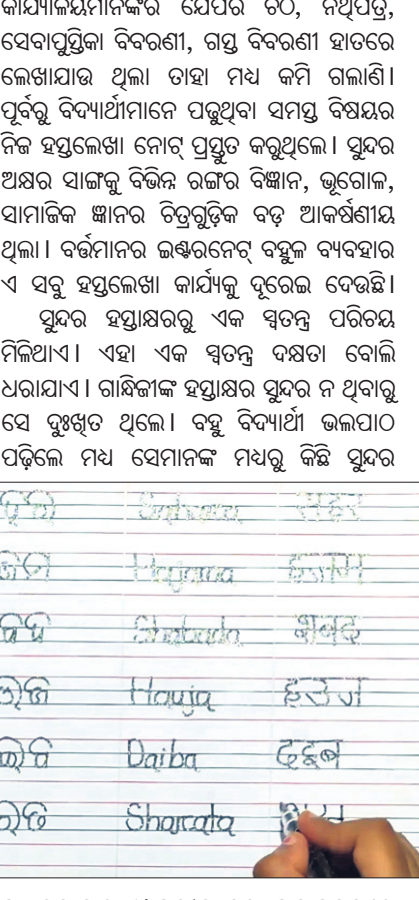 କାର୍ଯ୍ୟାଳୟମାନଙ୍କରେ ଯେପରି ଚିଠି, ନଥିପତ୍ର,
ସେବାପୁସ୍ତିକା ବିବରଣୀ, ଗସ୍ତ ବିବରଣୀ ହାତରେ
ଲେଖାଯାଉ ଥିଲା ତାହା ମଧ୍ୟ କମି ଗଲାଣି।
ପୂର୍ବରୁ ବିଦ୍ୟାର୍ଥୀମାନେ ପଢୁଥିବା ସମସ୍ତ ବିଷୟର
ନିଜ ହସ୍ତଲେଖା ନୋଟ୍ ପ୍ରସ୍ତୁତ କରୁଥିଲେ। ସୁନ୍ଦର
ଅକ୍ଷର ସାଙ୍ଗକୁ ବିଭିନ୍ନ ରଙ୍ଗର ବିଜ୍ଞାନ, ଭୂଗୋଳ,
ସାମାଜିକ ଜ୍ଞାନର ଚିତ୍ରଗୁଡ଼ିକ ବଡ଼ ଆକର୍ଷଣୀୟ
ଥିଲା। ବର୍ତ୍ତମାନର ଇଣ୍ଟରନେଟ୍ ବହୁଳ ବ୍ୟବହାର
ଏ ସବୁ ହସ୍ତଲେଖା କାର୍ଯ୍ୟକୁ ଦୂରେଇ ଦେଉଛି।
ସୁନ୍ଦର ହସ୍ତାକ୍ଷରରୁ ଏକ ସ୍ୱତନ୍ତ୍ର ପରିଚୟ
ମିଳିଥାଏ। ଏହା ଏକ ସ୍ୱତନ୍ତ୍ର ଦକ୍ଷତା ବୋଲି
ଧରାଯାଏ। ଗାନ୍ଧିଜୀଙ୍କ ହସ୍ତାକ୍ଷର ସୁନ୍ଦର ନ ଥିବାରୁ
ସେ ଦୁଃଖିତ ଥିଲେ। ବହୁ ବିଦ୍ୟାର୍ଥୀ ଭଲପାଠ
ପଢ଼ିଲେ ମଧ୍ୟ ସେମାନଙ୍କ ମଧ୍ୟରୁ କିଛି ସୁନ୍ଦର
Harjana
Shabada शबद
Hauja हउज
Daiba दइब
Sharata